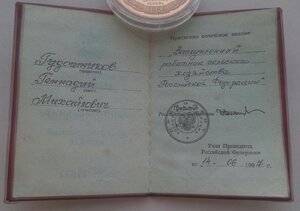 Гудожников
(фамилия)
Геннадий
(имя)
Михайлович
(отчество)
Присвоено почетное звание
„Заслуженный
работник сельского
хозяйства
Российской Федерации"
Указ Президента
Российской Федерации
14. 06 1997 г.